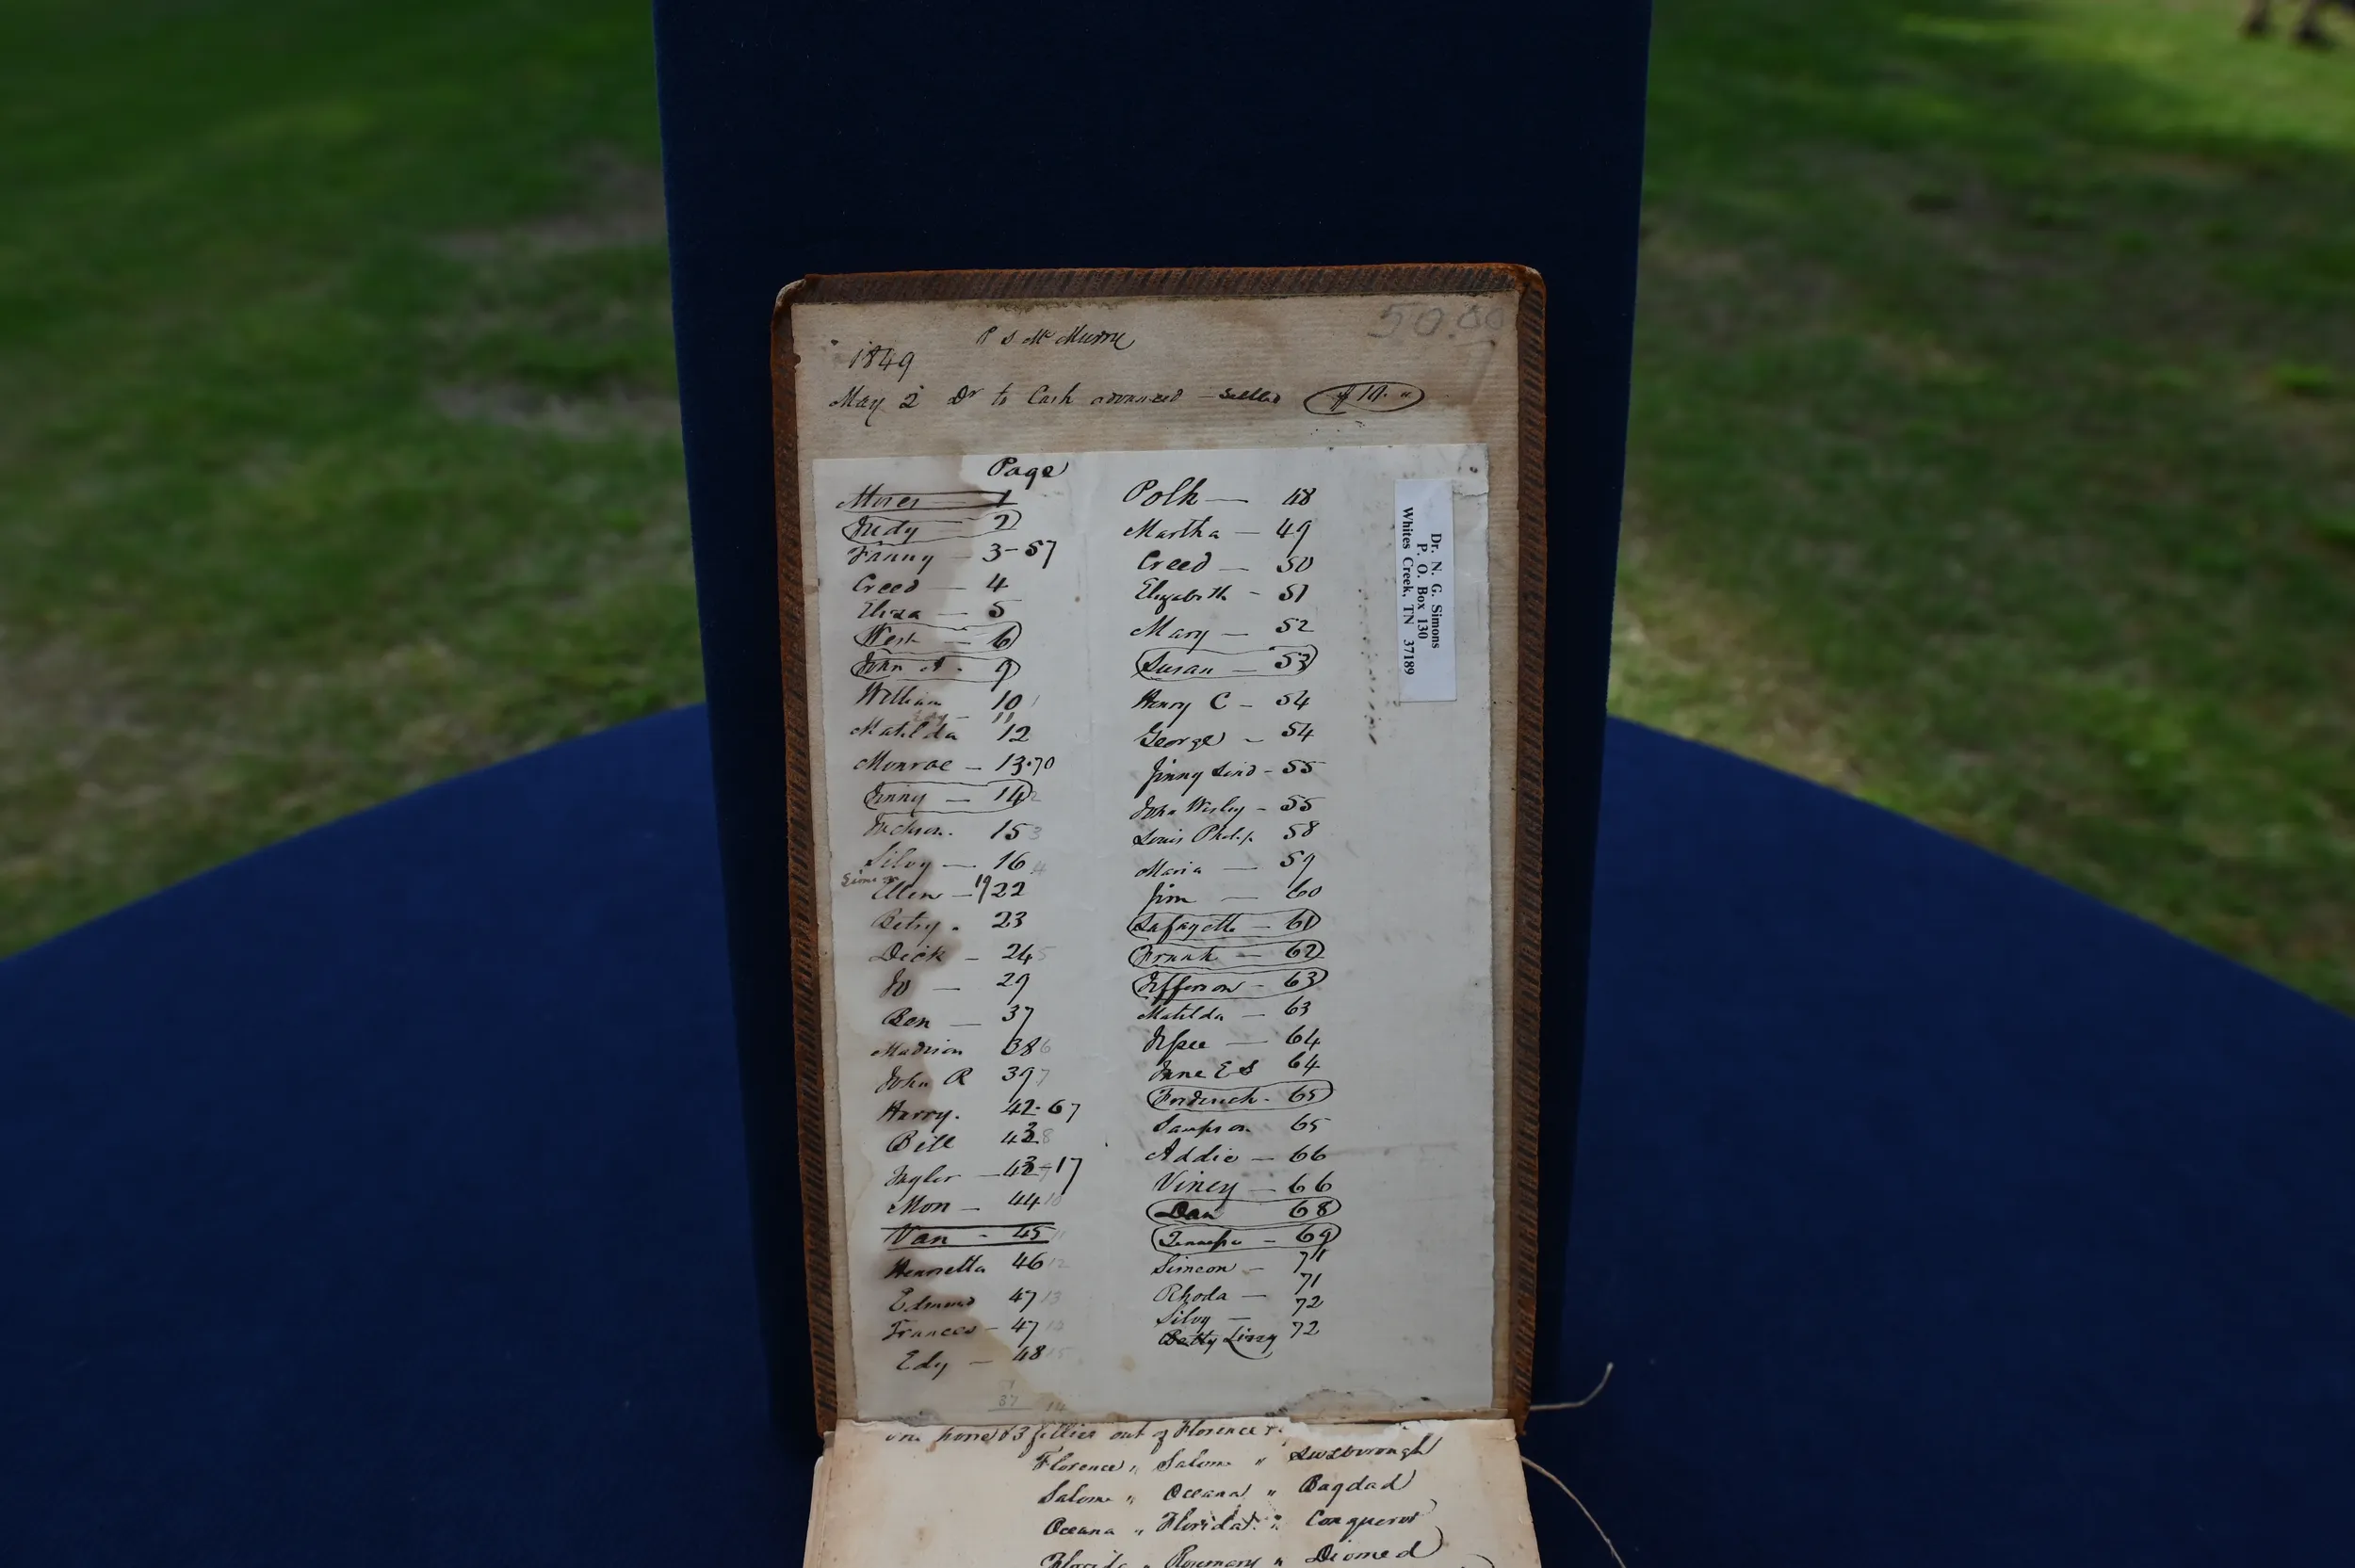 50.00
P S McMurry
1849
May 2 Dr to Cash advanced — settled $10. "
Page
Moses — 1
Judy — 2
Fanny — 3-57
Creed — 4
Eliza — 5
West — 6
John A. 9
William 10
11
Matilda 12
Monroe — 13.70
Jinny — 14
Jackson. 15
Silvy — 16
Simeon
Ellen — 19 22
Betsy. 23
Dick — 24
Jo — 29
Ben — 37
Madison 38
John R 39
Harry. 42-67
Bill 43
Taylor — 43-17
Mon — 44
Van - 45
Henrietta 46
Edmund 47
Frances — 47
Edy — 48
37 14
Polk — 48
Martha — 49
Creed — 50
Elizabeth - 51
Mary — 52
Susan — 53
Henry C — 54
George — 54
Jinny Lind - 55
John Wesley - 55
Louis Philip. 58
Maria — 59
Jim — 60
Lafayette — 61
Frank — 62
Jefferson - 63
Matilda — 63
Jesse — 64
Jane E S 64
Frederick. 65
Sampson 65
Addie — 66
Viney — 66
Dan 68
69
Simeon — 71
Rhoda — 71
Silvy — 72
Betty Lizzy 72
Dr. N. G. Simons
P. O. Box 130
Whites Creek, TN 37189
one horse & 3 fillies out of Florence
Florence " Salome "
Salome " Oceana " Bagdad
Oceana " Florida " Conqueror
Florida " Rosemary " Diomed